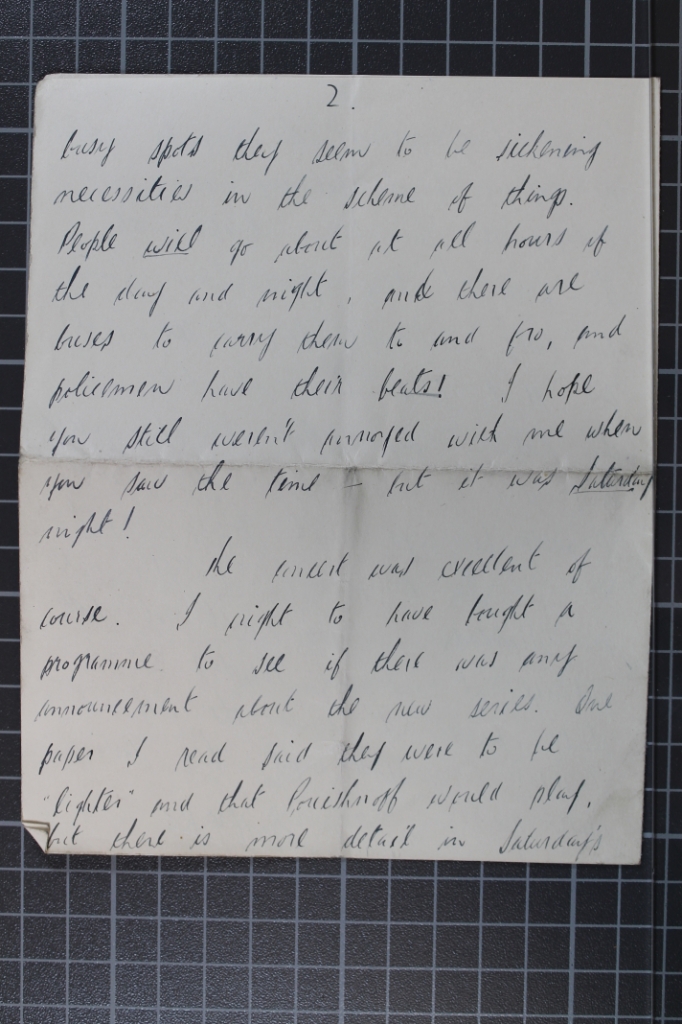 2.
busy spots they seem to be sickening
necessities in the scheme of things.
People will go about at all hours of
the day and night, and there are
buses to carry them to and fro, and
policemen have their beats! I hope
you still weren't annoyed with me when
you saw the time – but it was Saturday
night!
The concert was excellent of
course. I ought to have bought a
programme to see if there was any
announcement about the new series. One
paper I read said they were to be
"lighter" and that Pouishnoff would play,
but there is more detail in Saturday's